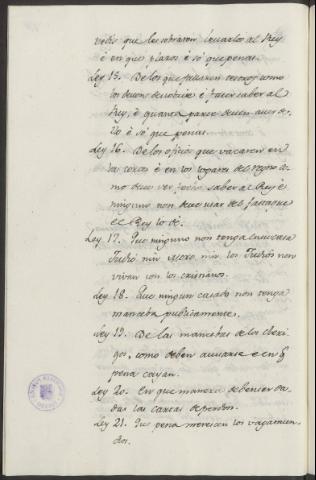 que los
é en que plazos é só que penas.
Ley 15. De los que fallaren tesoros como
los deuen descobrir é facer saber al
Rey, é quanta parte deuen auer de-
llo é só que penas.
Ley 16. De los oficios que vacaren en
la corte é en los logares del regno co-
mo deue ser fecho saber al Rey é
ninguno non deue usar del fasta que
el Rey lo dé.
Ley 17. Que ninguno non tenga en su casa
Judió nin Moro nin los Judios non
vivan con los cristianos.
Ley 18. Que ningun casado non tenga
manceba publicamente.
Ley 19. De las mancebas de los cleri-
gos, como deben auisarse e en q
pena cayan.
Ley 20. En que manera deben ser da-
das las cartas de perdon.
Ley 21. Que pena merescen los vagamun-
dos.